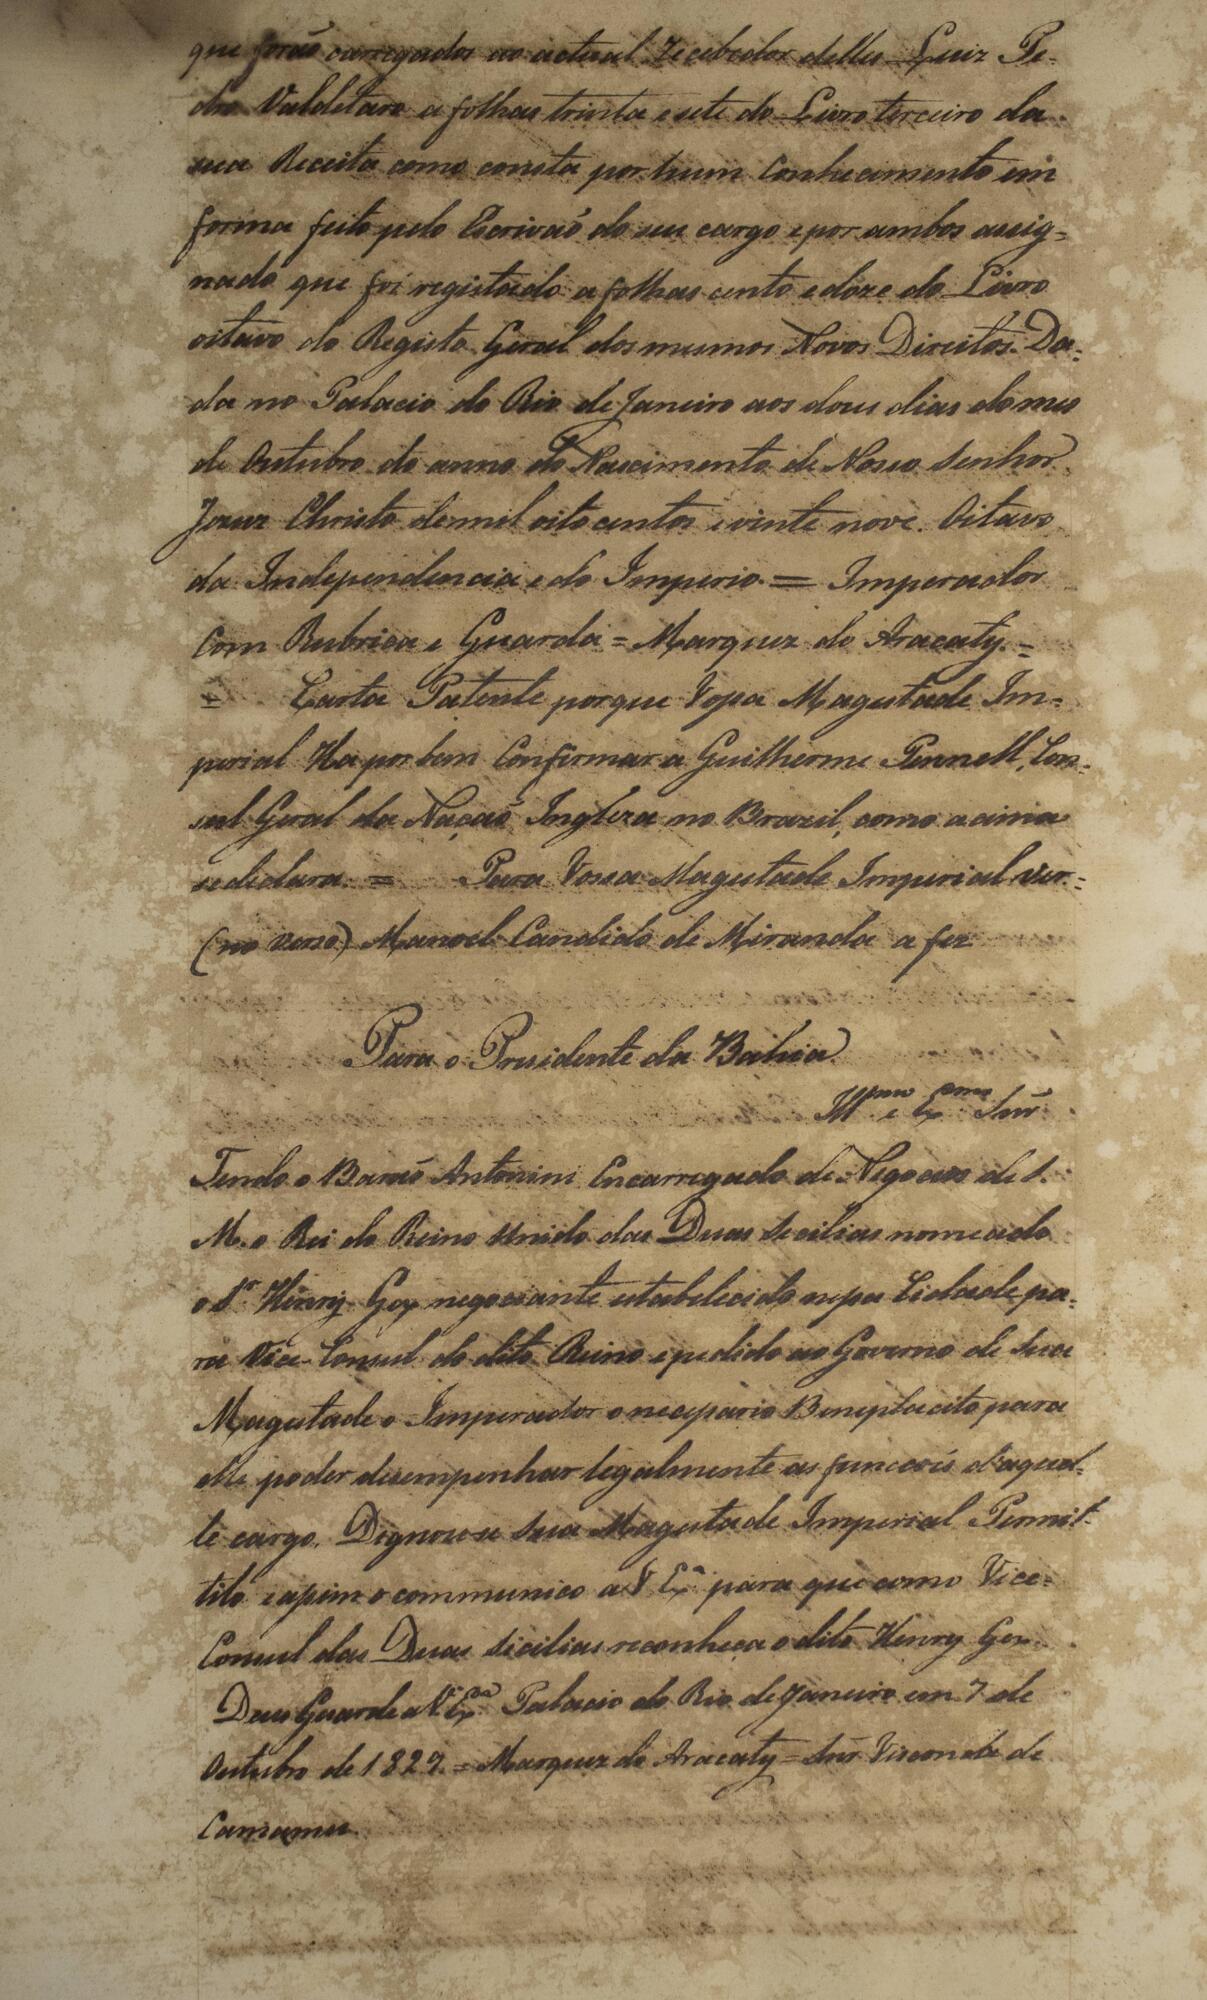 que forão carregados ao actual Recebedor delles Luiz Pe-
dro Valdetaro a folhas trinta e sete do Livro terceiro da
sua Receita como consta por hum Conhecimento em
forma feito pelo Escrivaõ do seu cargo e por ambos assig-
nado que foi registado a folhas cento e doze do Livro
oitavo do Registo Geral dos mesmos Novos Direitos. Da-
da no Palacio do Rio de Janeiro aos dous dias do mes
de Outubro do anno do Nascimento de Nosso Senhor
Jezus Christo de mil oito centos e vinte nove. Oitavo
da Independencia e do Imperio. = Imperador
Com Rubrica e Guarda = Marquez do Aracaty. =
= Carta Patente porque Vossa Magestade Im-
perial Ha por bem Confirmar a Guilherme Pennell, Con-
sul Geral da Naçaõ Ingleza no Brazil, como acima
se declara. = Para Vossa Magestade Imperial ver.-
(no verso) Manoel Candido de Miranda a fez
Para o Presidente da Bahia
Illmo e Exmo Snr
Tendo o Barão Antonini Encarregado de Negocios de S.
M. o Rei do Reino Unido das Duas Secilias nomeado
o Sr Henry Gex negociante estabelecido nessa Cidade pa-
ra Vice-Consul do dito Reino e pedido ao Governo de Sua
Magestade o Imperador o necessario Beneplacito para
elle poder desempenhar legalmente as funcoẽs d'aquel-
le cargo. Dignou-se Sua Magestade Imperial Permit-
tilo e assim o communico a V Exa para que como Vice-
Consul das Duas Sicilias reconheça o dito Henry Gex.
Deus Guarde a Va Exa Palacio do Rio de Janeiro em 7 de
Outubro de 1829. = Marquez do Aracaty = Snr Visconde de
Camamu